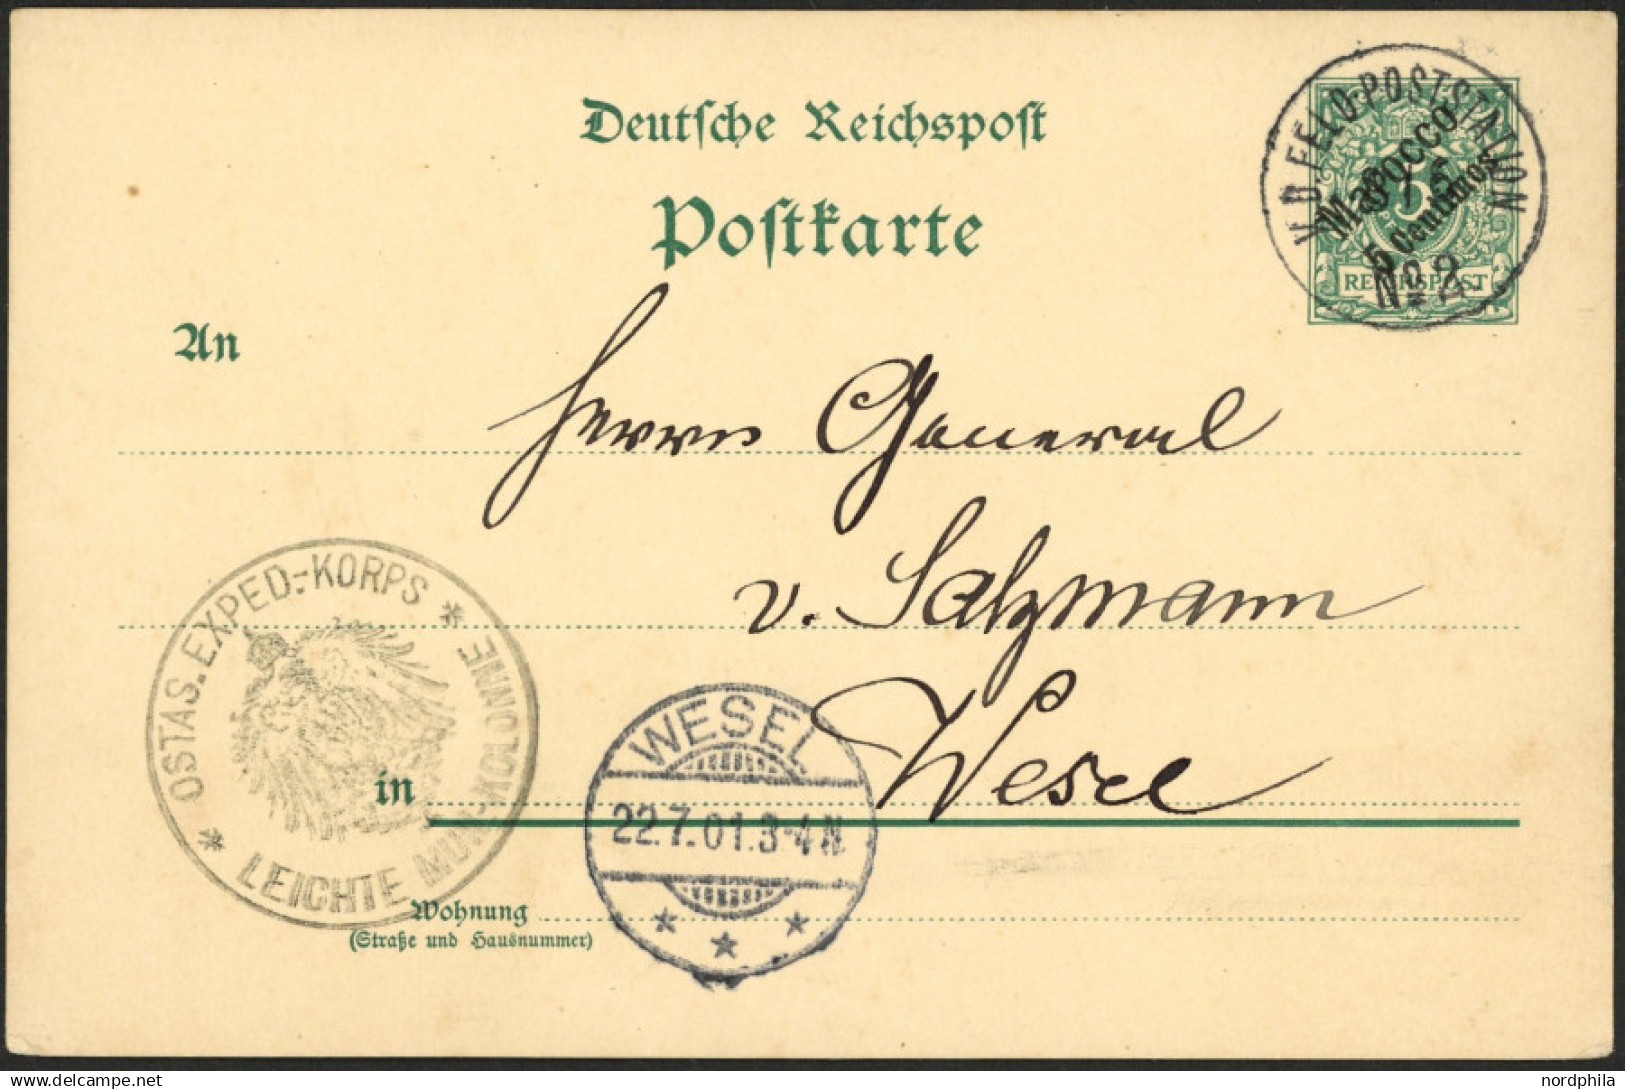 Deutsche Reichspost
Postkarte
K.D. FELD-POSTSTATION
Marocco
5 Centimos
REICHSPOST
No 2.
An
Herrn General
v. Salzmann
Wesel
in
OSTAS. EXPED.-KORPS *
* LEICHTE MUN.-KOLONNE
WESEL
22.7.01.3-4N.
* * *
Wohnung
(Straße und Hausnummer)
nordphila